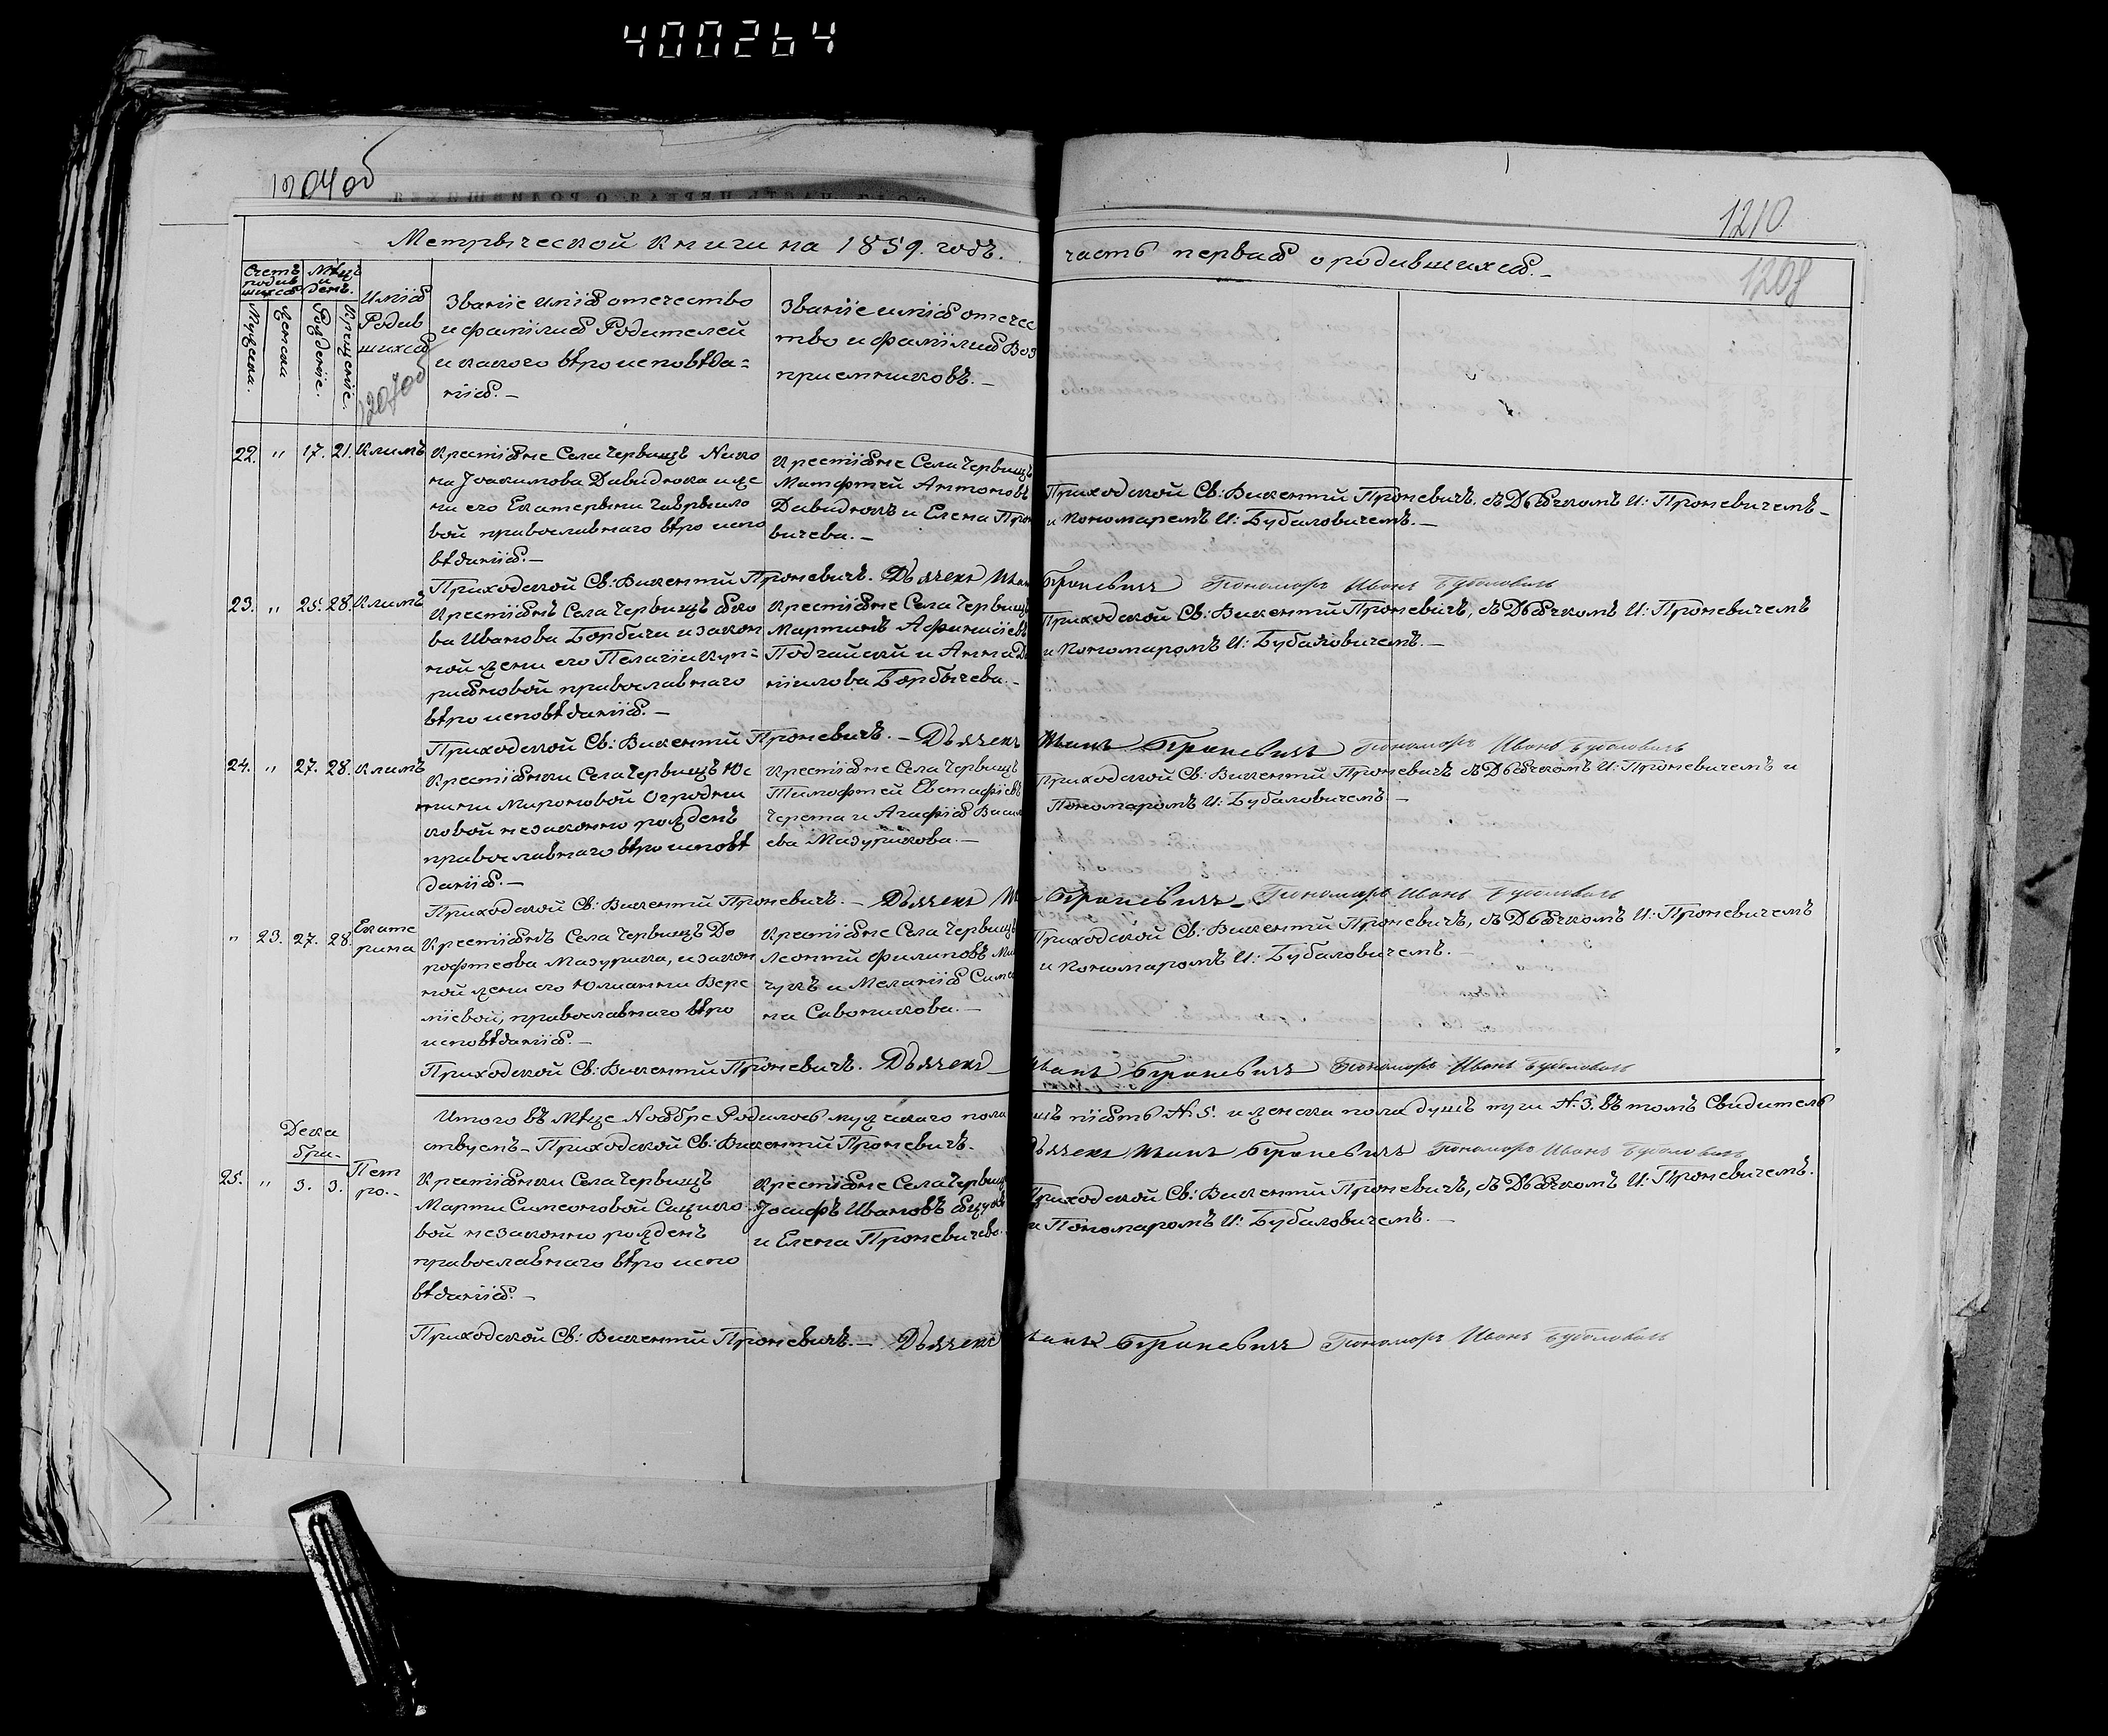 400264
1210
1208
Метрыческой книги на 1859. годъ. часть первая о родившихся.–
Счетъ родив шихся
Мѣцъ и день.
Мужеска.
женска
Рожденіе.
Крещеніе.
Имія Родив шихся
Званіе имія отечество
и фамилия Родителей
и какого вѣроисповѣда=
нія.–
Званіе имія отечес
тво и фамілия Воз
приемниковъ.–
22. " 17. 21. Климъ
Крестіяне Села Червищъ Нико
на Іоакимова Давидюка и же
ны его Екатерыны Гаврыило
вой православнаго вѣро испо
вѣданія.–
Крестіяне Села Червищъ
Матфтей Антоновъ
Давидюкъ и Елена Прон
вичева.–
Приходской Св: Викентій Проневичъ. съ Дьячкомъ И: Проневичемъ–
и Пономаремъ И: Бубаловичемъ.–
Приходской Св: Викентій Проневичъ. Дьячекъ Иванъ Проневичъ Пономаръ Иванъ Бубаловичъ
23. " 25. 28. Климъ
Крестіянъ Села Червищъ Яко
ва Иванова Борбичи и закон
ной жены его Пелагіи Куп=
риановой православнаго
вѣро исповѣданія.–
Крестіяне Села Червищъ
Мартинъ Афинигіевъ
Подгайскій и Анна Да
ніилова Борбычева.–
Приходской Св: Викентій Проневичъ, съ Дьячкомъ И: Проневичемъ
и Пономаромъ И: Бубаловичемъ.–
Приходской Св: Викентій Проневичъ.– Дьячекъ Иванъ Проневичъ Пономаръ Иванъ Бубаловичъ
24. " 27. 28. Климъ
Крестіянки Села Червищъ Юс
тины Мироновой Огродни
ковой незаконно рожденъ
православнаго вѣро исповѣ
данія.–
Крестіяне Села Червищъ
Тимофтей Евстафіевъ
Черета и Агафія Васил
ева Мазурикова.–
Приходской Св: Викентій Проневичъ съ Дьячкомъ И: Проневичемъ и
Пономаромъ И: Бубаловичемъ–
Приходской Св: Викентій Проневичъ.– Дьячекъ Проневичъ– Пономаръ Иванъ Бубаловичъ
" 23. 27. 28. Екате рина
Крестіянъ Села Червищъ До
рофтеова Мазурика, и закон
ной жены его Юлианны Вере
міевой, православнаго вѣро
исповѣданія.–
Крестіяне Села Червищъ
Леонтій Филиповъ Ми
чукъ и Меланія Симо
на Савоникова.–
Приходской Св: Викентій Проневичъ, съ Дьячкомъ И: Проневичемъ
и Пономаромъ И: Бубаловичемъ.–
Приходской Св: Викентій Проневичъ. Дьячекъ Иванъ Проневичъ Пономаръ Иванъ Бубаловичъ
Итого въ Мѣцѣ Ноябре Родилось мужскаго пола душъ піять №. 5. и женска пола душъ тры №. 3. Въ томъ Свидитель
ствуемъ– Приходской Св: Викентій Проневичъ. Дьячекъ Иванъ Проневичъ Пономаръ Иванъ Бубаловичъ
Дека
бри–
25. " 3. 3. Пет ро.–
Крестіянки Села Червищъ
Марты Симеоновой Сацико
вой незаконно рожденъ
православнаго вѣро испо
вѣданія.–
Крестіяне Села Червищъ
Іосифъ Ивановъ Яцукъ
и Елена Проневичева.
Приходской Св: Викентій Проневичъ, съ Дьячкомъ И: Проневичемъ.
и Пономаромъ И: Бубаловичемъ.–
Приходской Св: Викентій Проневичъ.– Дьячекъ Иванъ Проневичъ Пономаръ Иванъ Бубаловичъ